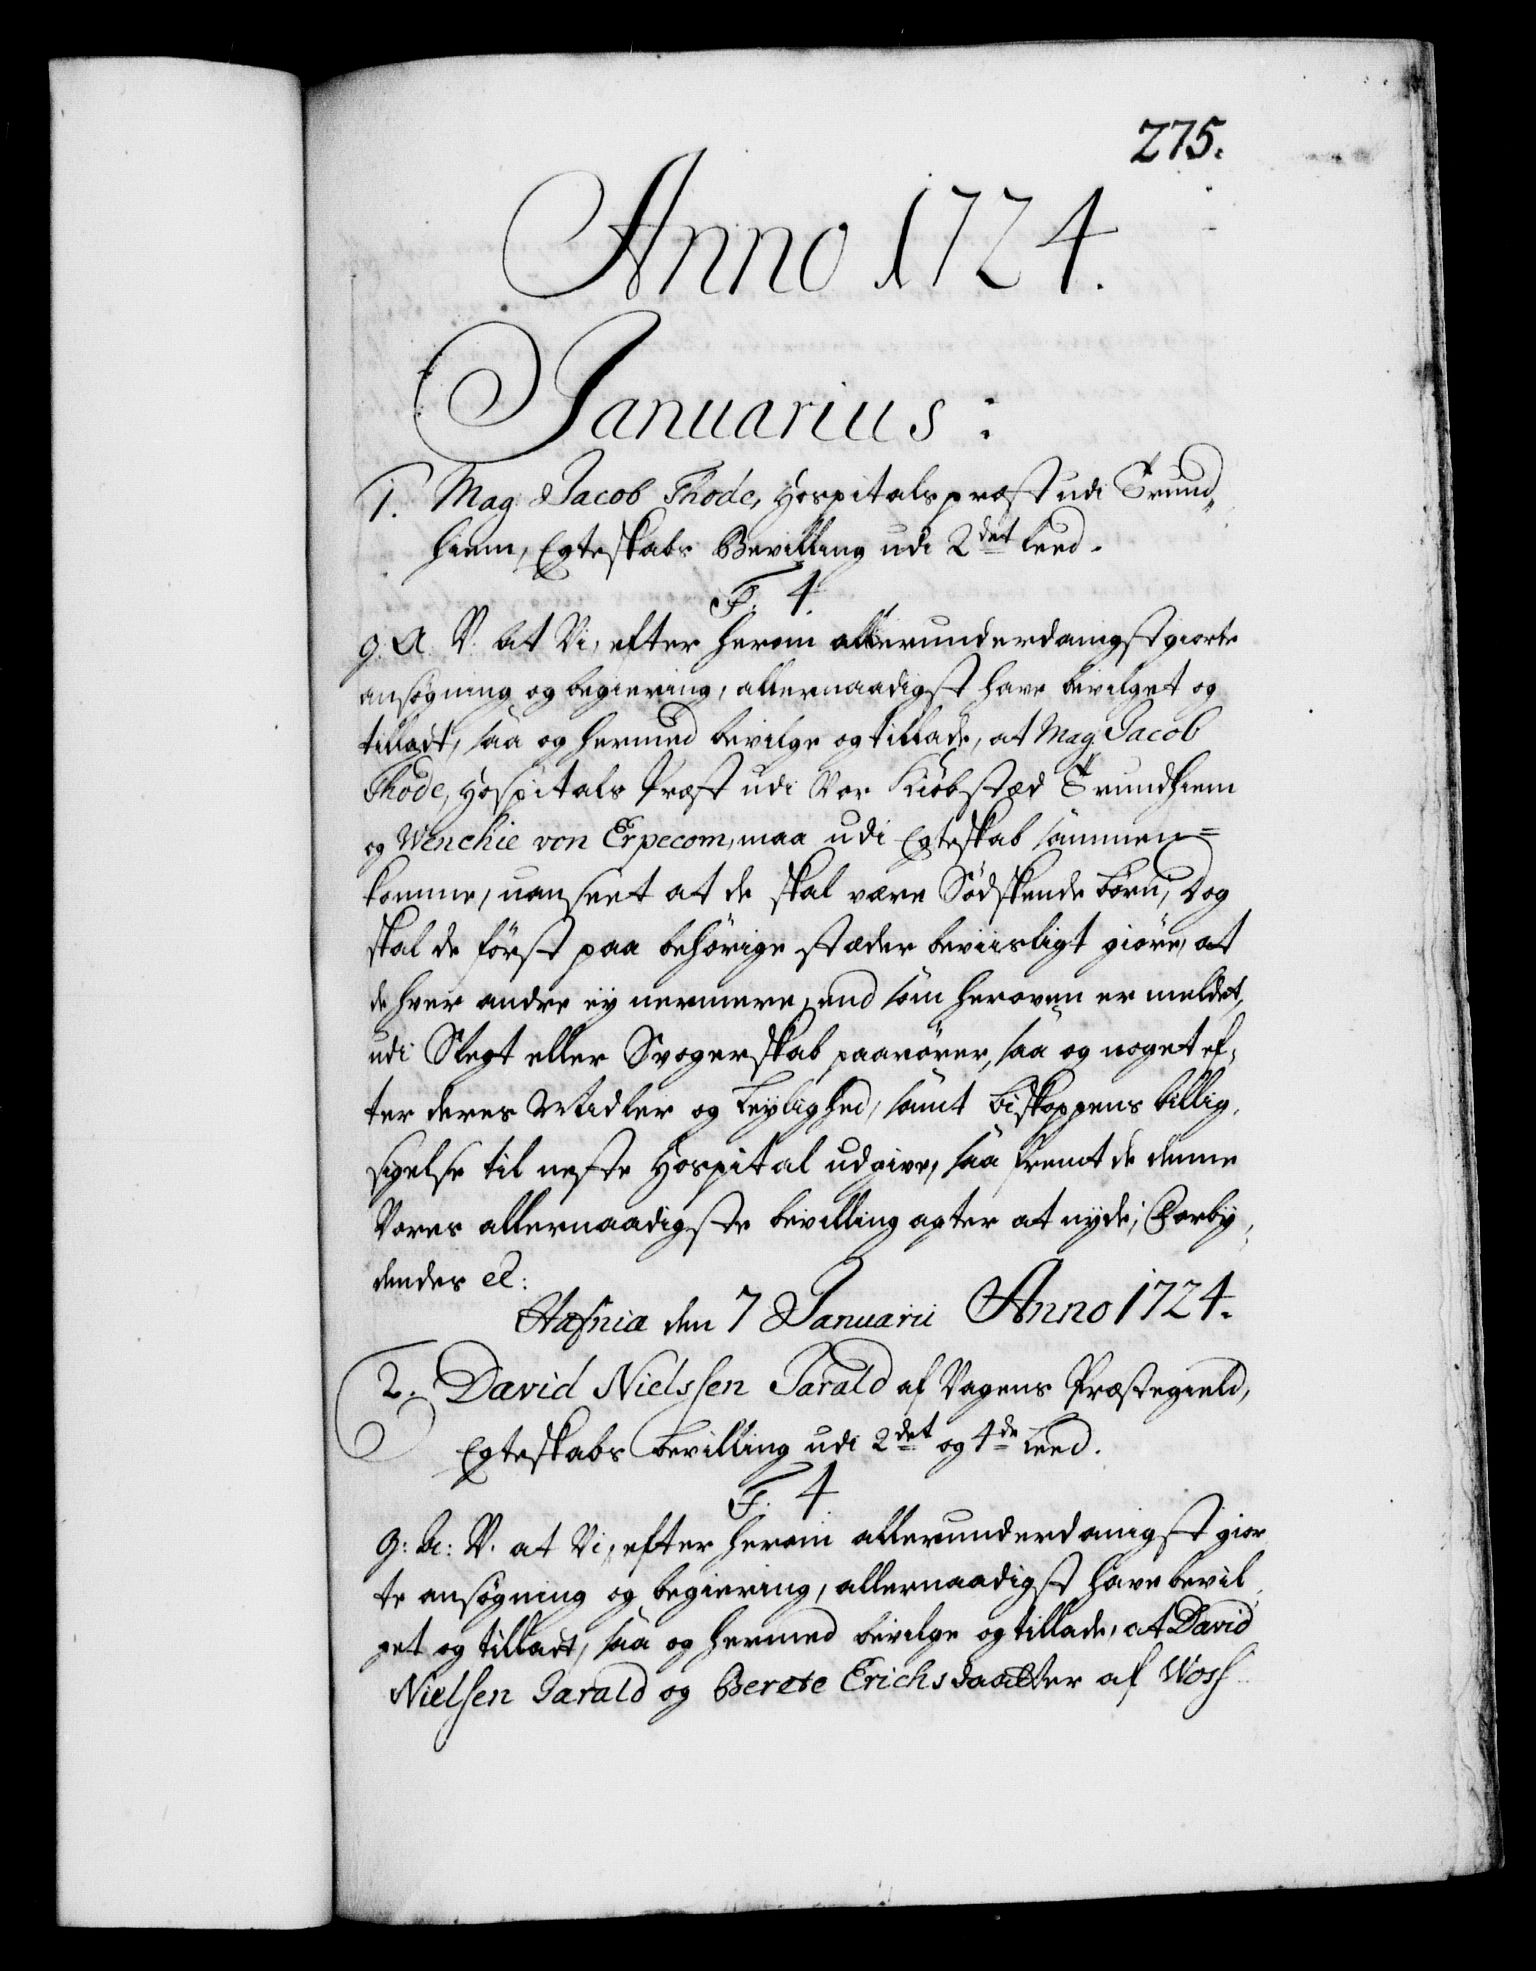 275.
Anno 1724.
Januarius:
1. Mag: Jacob Thode, Hospitalspræst udi Trund-
hiem, Egteskabs Bevilling udi 2det Leed.
F. 4.
G. A. V. at Vi, efter herom allerunderdanigst giorte
ansøgning og begiering, allernaadigst have bevilget og
tilladt, saa og hermed bevilge og tillade, at Mag Jacob
Thode, Hospitals Præst udi Vor Kiöbstæd Trundhiem
og Wenchie von Erpecom, maa udi Egteskab sammen=
komme, uanseet at de skal være Södskende börn, Dog
skal de först paa behörige stæder beviisligt giöre, at
de hver andre ey nermere, end som heroven er meldet,
udi Slegt eller Svogerskab paarörer, saa og noget ef-
ter deres Midler og Leylighed, samt Biskoppens billig-
sigelse til neste Hospital udgive, saa fremt de denne
Vores allernaadigste bevilling agter at nyde; Forby-
dendes etc:
Hafnia den 7 Januarii Anno 1724.
2. David Nielssen Jarald af Vagens Præstegield,
Egteskabs bevilling udi 2det og 4de Leed.
F. 4
G: A: V. at Vi, efter herom allerunderdanigst gior
te ansøgning og begiering, allernaadigst have bevil-
get og tilladt, saa og hermed bevilge og tillade, at David
Nielsen Jarald og Berete Erichsdaatter af Woss-